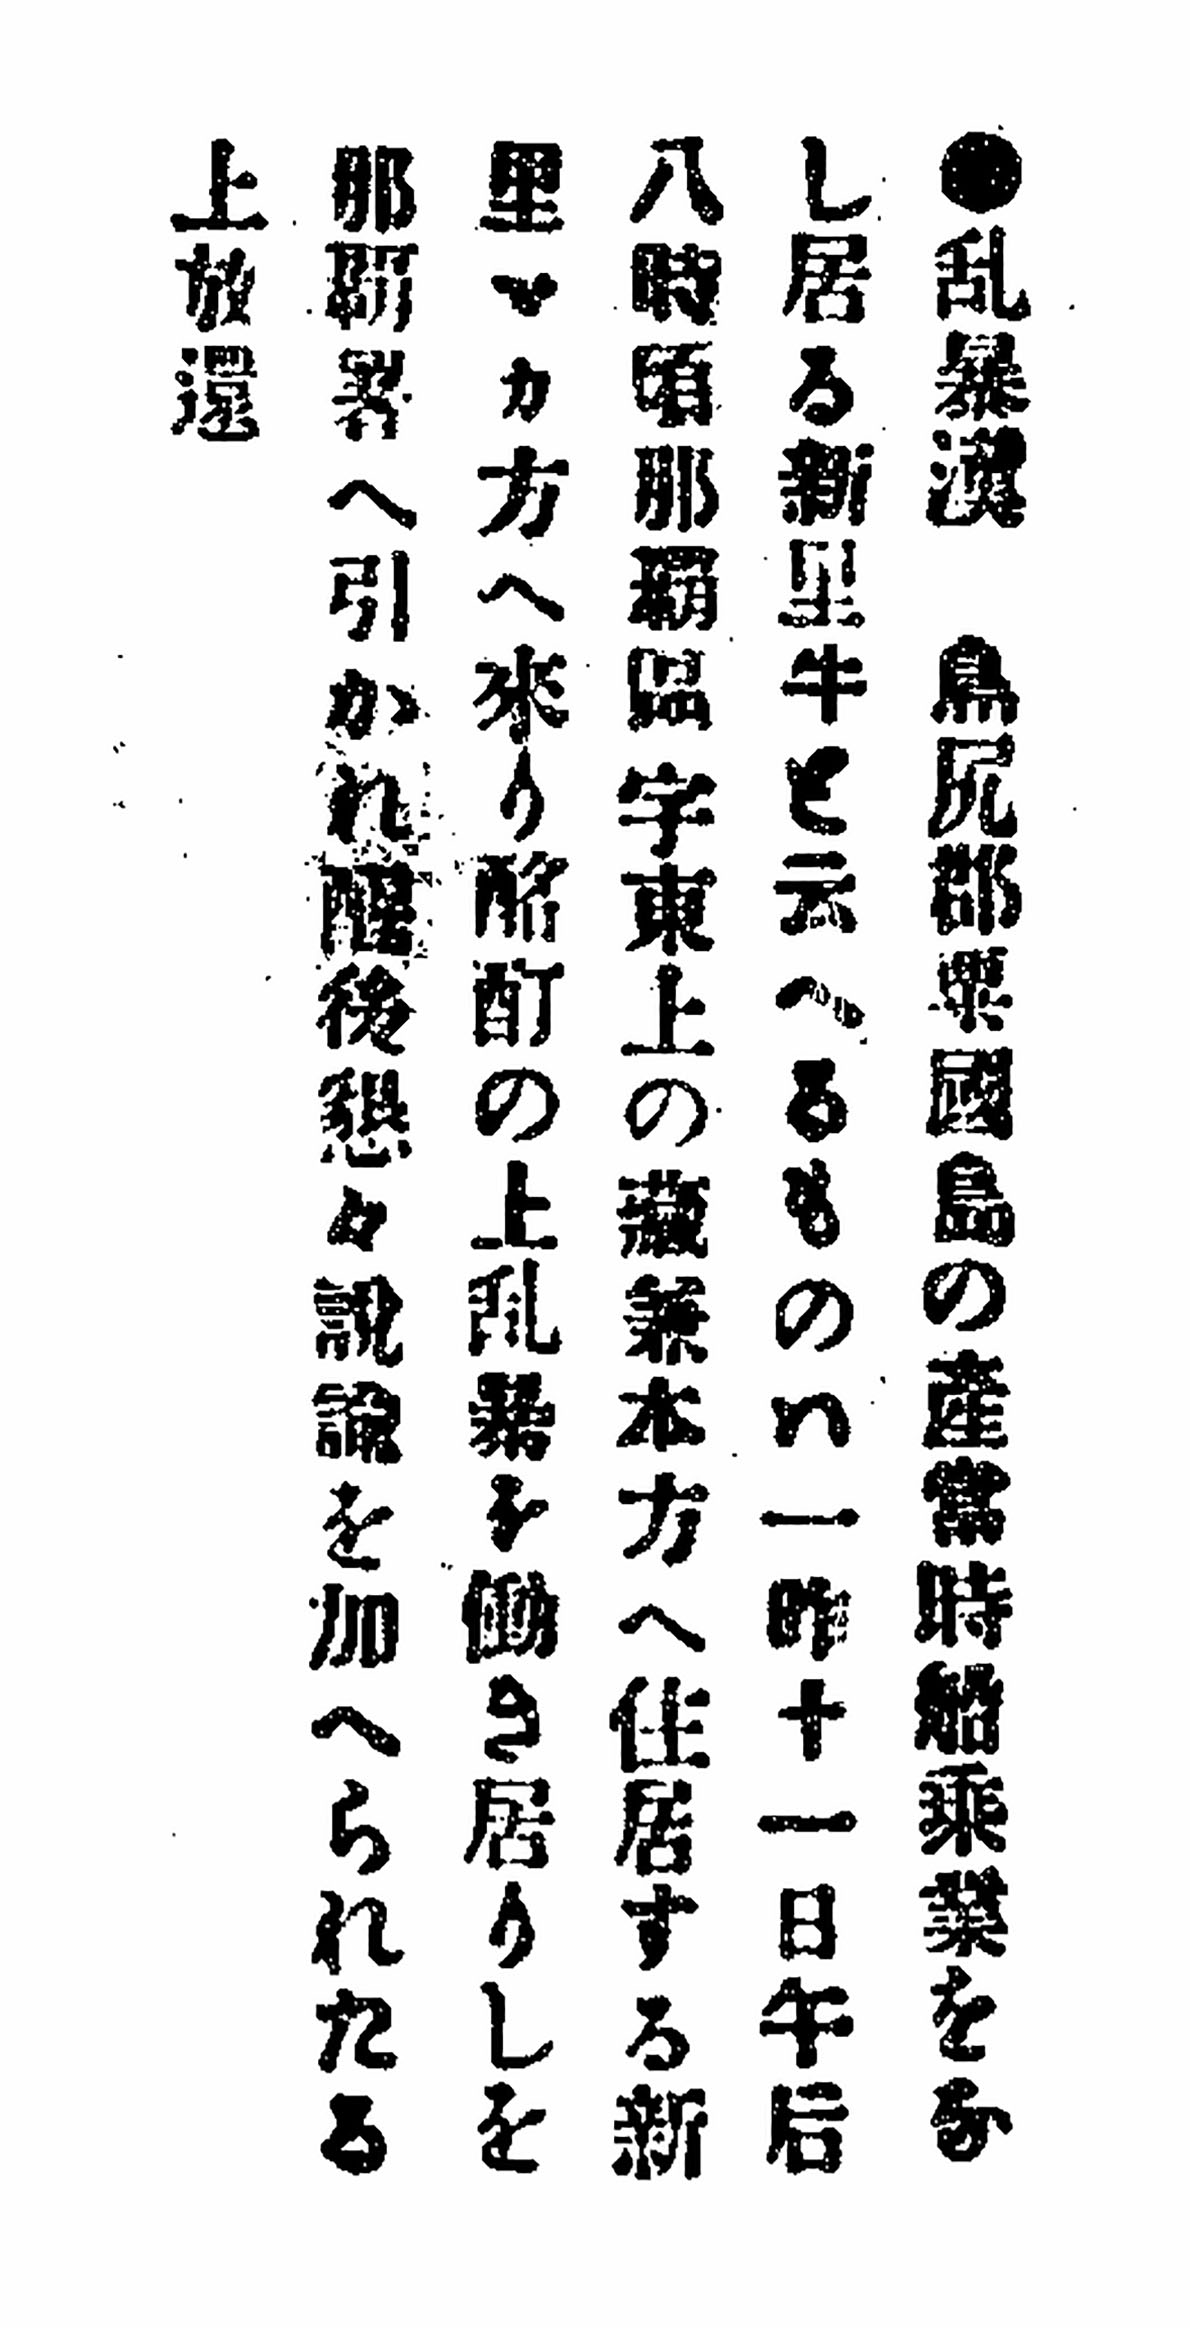 ●乱暴漢　島尻郡粟國島の產當時船乘業をな
し居る新里牛と云へるものハ一昨十一日午后
八時頃那覇區字東上の藏兼本方へ住居する新
里ヵ方へ來り酩酊の上乱暴を働き居りしを
那覇署へ引かれ醒後懇々說諭を加へられたる
上放還